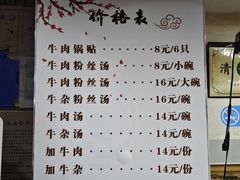 价格表
牛肉锅贴······8元/6只
牛肉粉丝汤······8元/小碗
牛肉粉丝汤······16元/大碗
牛杂粉丝汤······16元/碗
牛肉汤······14元/碗
牛杂汤······14元/碗
加牛肉······14元/份
加牛杂······14元/份
清